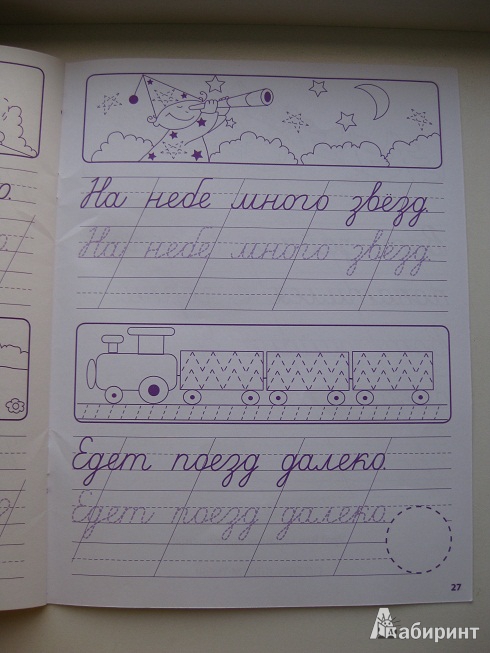 На небе много звезд.
На небе много звезд.
Едет поезд далеко.
Едет поезд далеко.
27
Лабиринт